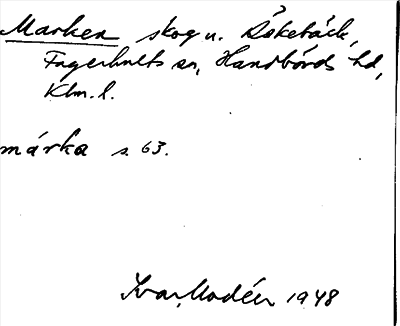 Marken skog u. Dåketäck,
Fagerhults sn, Handbörds hd,
Klm. l.
márka s. 63.
Ivar Modéer 1948